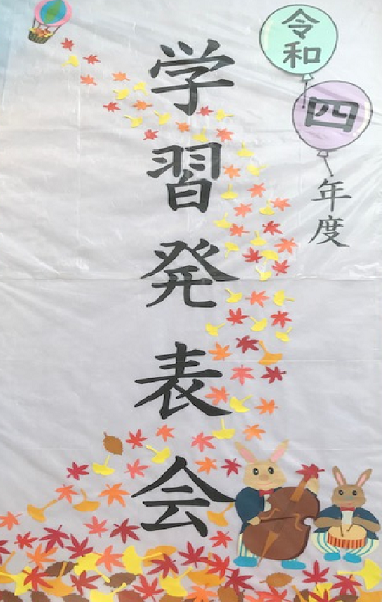 令和
四
年度
学習発表会